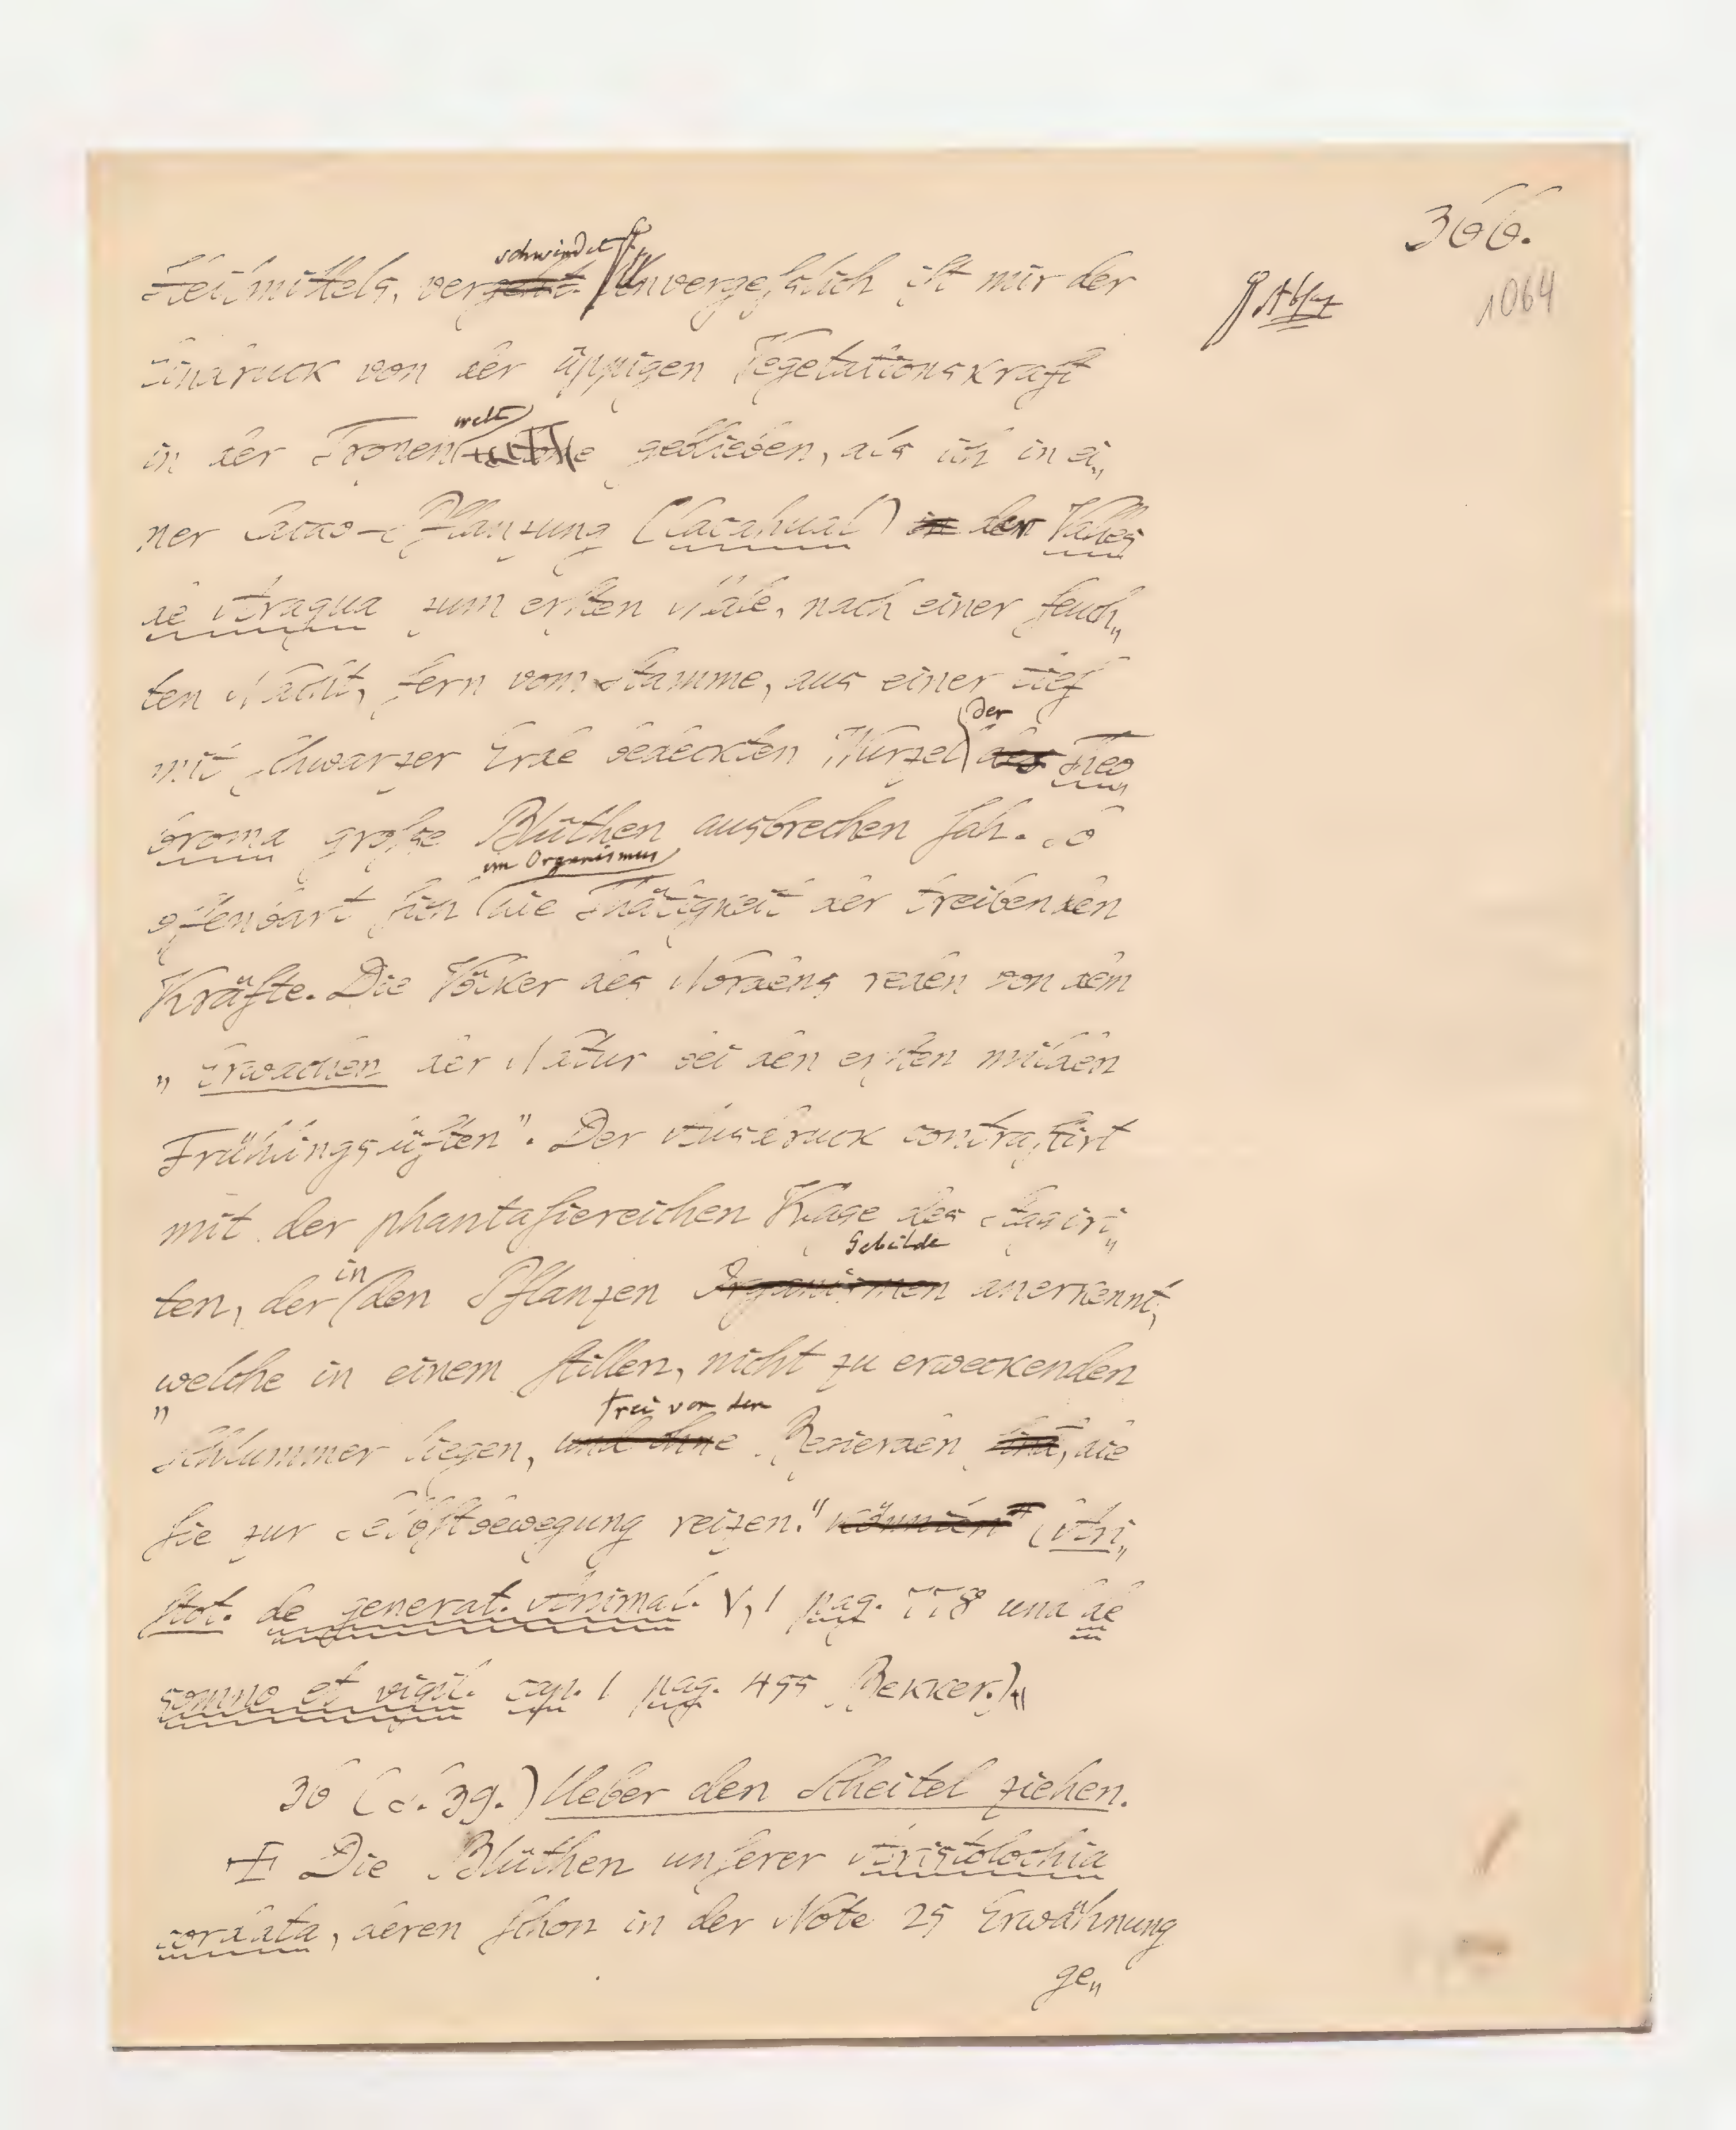 366.
1064
Absatz
schwindet
Heilmittels, vergeht. Unvergeßlich ist mir der
Eindruck von der üppigen Vegetationskraft
welt
in der Tropen geblieben, als ich in ei„
ner Cacao-Pflanzung (Cacahual) in der Valles
de Aragua zum ersten Male, nach einer feuch„
ten Nacht, fern vom Stamme, aus einer tief
der
mit schwarzer Erde bedeckten Wurzel des Theo
broma große Blüthen ausbrechen sah. So
im Organismus
offenbart sich die Thätigkeit der treibenden
Kräfte. Die Völker des Nordens reden von dem
„Erwachen der Natur bei den ersten milden
Frühlingslüften“. Der Ausdruck contrastirt
mit der phantasiereichen Klage des Stagiri„
Gebilde
in
ten, der den Pflanzen Organismen anerkennt,
welche in einem stillen, nicht zu erweckenden
frei von den
„Schlummer liegen, und ohne Begierden sind, die
sie zur Selbstbewegung reizen.“ könnten“ (Ari„
stot. de generat. Animal. V, 1 pag. 778 und de
somno et vigil. cap. 1 pag. 455 Bekker.)„
36 (S. 39.) Ueber den Scheitel ziehen.
Die Blüthen unserer Aristolochia
cordata, deren schon in der Note 25 Erwähnung
ge„